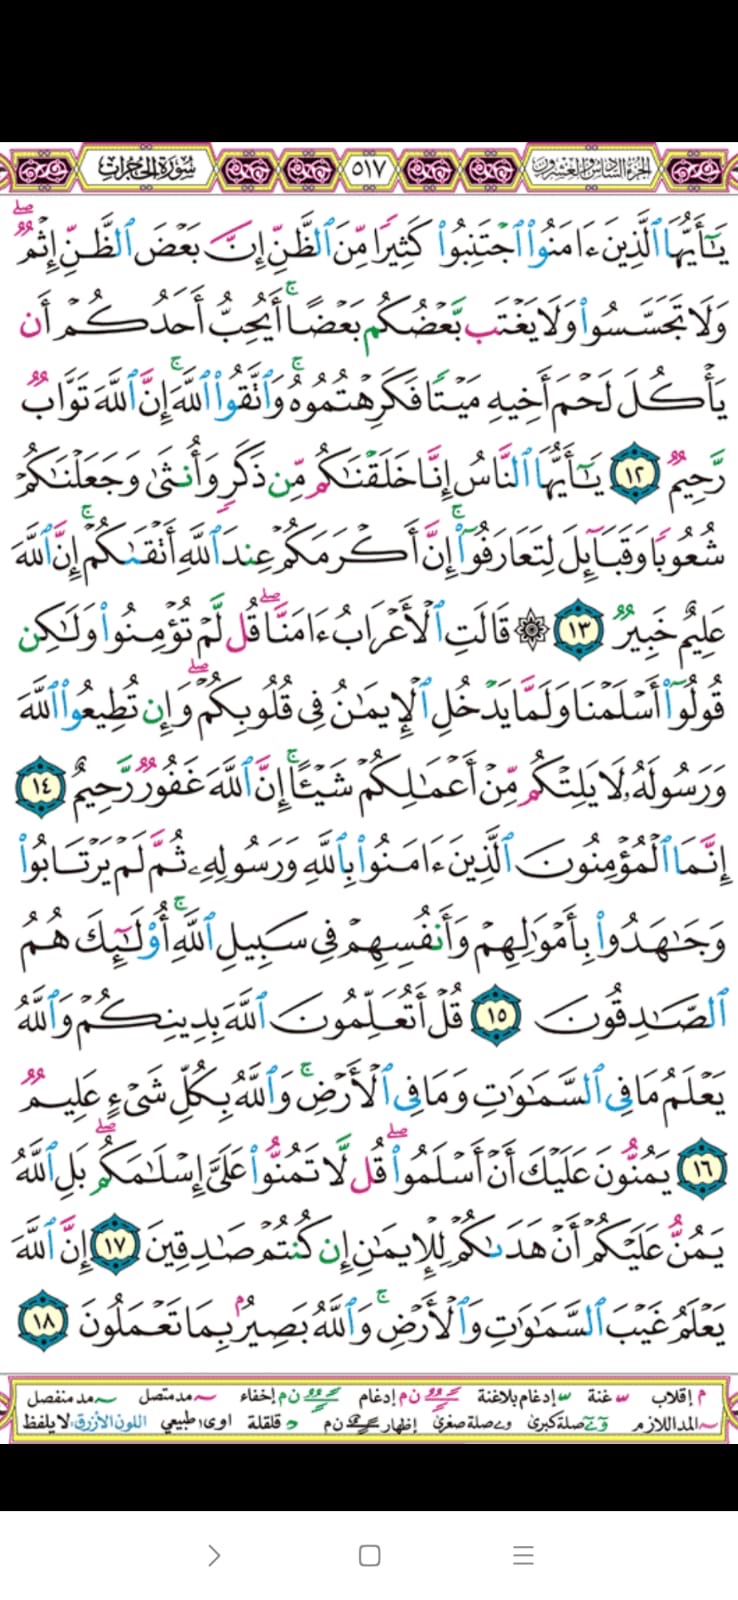 الجزء السادس والعشرون ٥١٧ سورة الحجرات
يَٰٓأَيُّهَا ٱلَّذِينَ ءَامَنُوا۟ ٱجْتَنِبُوا۟ كَثِيرًا مِّنَ ٱلظَّنِّ إِنَّ بَعْضَ ٱلظَّنِّ إِثْمٌ ۖ
وَلَا تَجَسَّسُوا۟ وَلَا يَغْتَب بَّعْضُكُم بَعْضًا ۚ أَيُحِبُّ أَحَدُكُمْ أَن
يَأْكُلَ لَحْمَ أَخِيهِ مَيْتًا فَكَرِهْتُمُوهُ ۚ وَٱتَّقُوا۟ ٱللَّهَ ۚ إِنَّ ٱللَّهَ تَوَّابٌ
رَّحِيمٌ ١٢ يَٰٓأَيُّهَا ٱلنَّاسُ إِنَّا خَلَقْنَٰكُم مِّن ذَكَرٍ وَأُنثَىٰ وَجَعَلْنَٰكُمْ
شُعُوبًا وَقَبَآئِلَ لِتَعَارَفُوٓا۟ ۚ إِنَّ أَكْرَمَكُمْ عِندَ ٱللَّهِ أَتْقَىٰكُمْ ۚ إِنَّ ٱللَّهَ
عَلِيمٌ خَبِيرٌ ١٣ ۞ قَالَتِ ٱلْأَعْرَابُ ءَامَنَّا ۖ قُل لَّمْ تُؤْمِنُوا۟ وَلَٰكِن
قُولُوٓا۟ أَسْلَمْنَا وَلَمَّا يَدْخُلِ ٱلْإِيمَٰنُ فِى قُلُوبِكُمْ ۖ وَإِن تُطِيعُوا۟ ٱللَّهَ
وَرَسُولَهُۥ لَا يَلِتْكُم مِّنْ أَعْمَٰلِكُمْ شَيْـًٔا ۚ إِنَّ ٱللَّهَ غَفُورٌ رَّحِيمٌ ١٤
إِنَّمَا ٱلْمُؤْمِنُونَ ٱلَّذِينَ ءَامَنُوا۟ بِٱللَّهِ وَرَسُولِهِۦ ثُمَّ لَمْ يَرْتَابُوا۟
وَجَٰهَدُوا۟ بِأَمْوَٰلِهِمْ وَأَنفُسِهِمْ فِى سَبِيلِ ٱللَّهِ ۚ أُو۟لَٰٓئِكَ هُمُ
ٱلصَّٰدِقُونَ ١٥ قُلْ أَتُعَلِّمُونَ ٱللَّهَ بِدِينِكُمْ وَٱللَّهُ
يَعْلَمُ مَا فِى ٱلسَّمَٰوَٰتِ وَمَا فِى ٱلْأَرْضِ ۚ وَٱللَّهُ بِكُلِّ شَىْءٍ عَلِيمٌ
١٦ يَمُنُّونَ عَلَيْكَ أَنْ أَسْلَمُوا۟ ۖ قُل لَّا تَمُنُّوا۟ عَلَىَّ إِسْلَٰمَكُم ۖ بَلِ ٱللَّهُ
يَمُنُّ عَلَيْكُمْ أَنْ هَدَىٰكُمْ لِلْإِيمَٰنِ إِن كُنتُمْ صَٰدِقِينَ ١٧ إِنَّ ٱللَّهَ
يَعْلَمُ غَيْبَ ٱلسَّمَٰوَٰتِ وَٱلْأَرْضِ ۚ وَٱللَّهُ بَصِيرٌۢ بِمَا تَعْمَلُونَ ١٨
م إقلاب غنة إدغام بلاغنة ن م إدغام ن م إخفاء مد متصل مد منفصل
المد اللازم صلة كبرى صلة صغرى إظهار ن م قلقلة اوى طبيعي اللون الأزرق: لا يلفظ